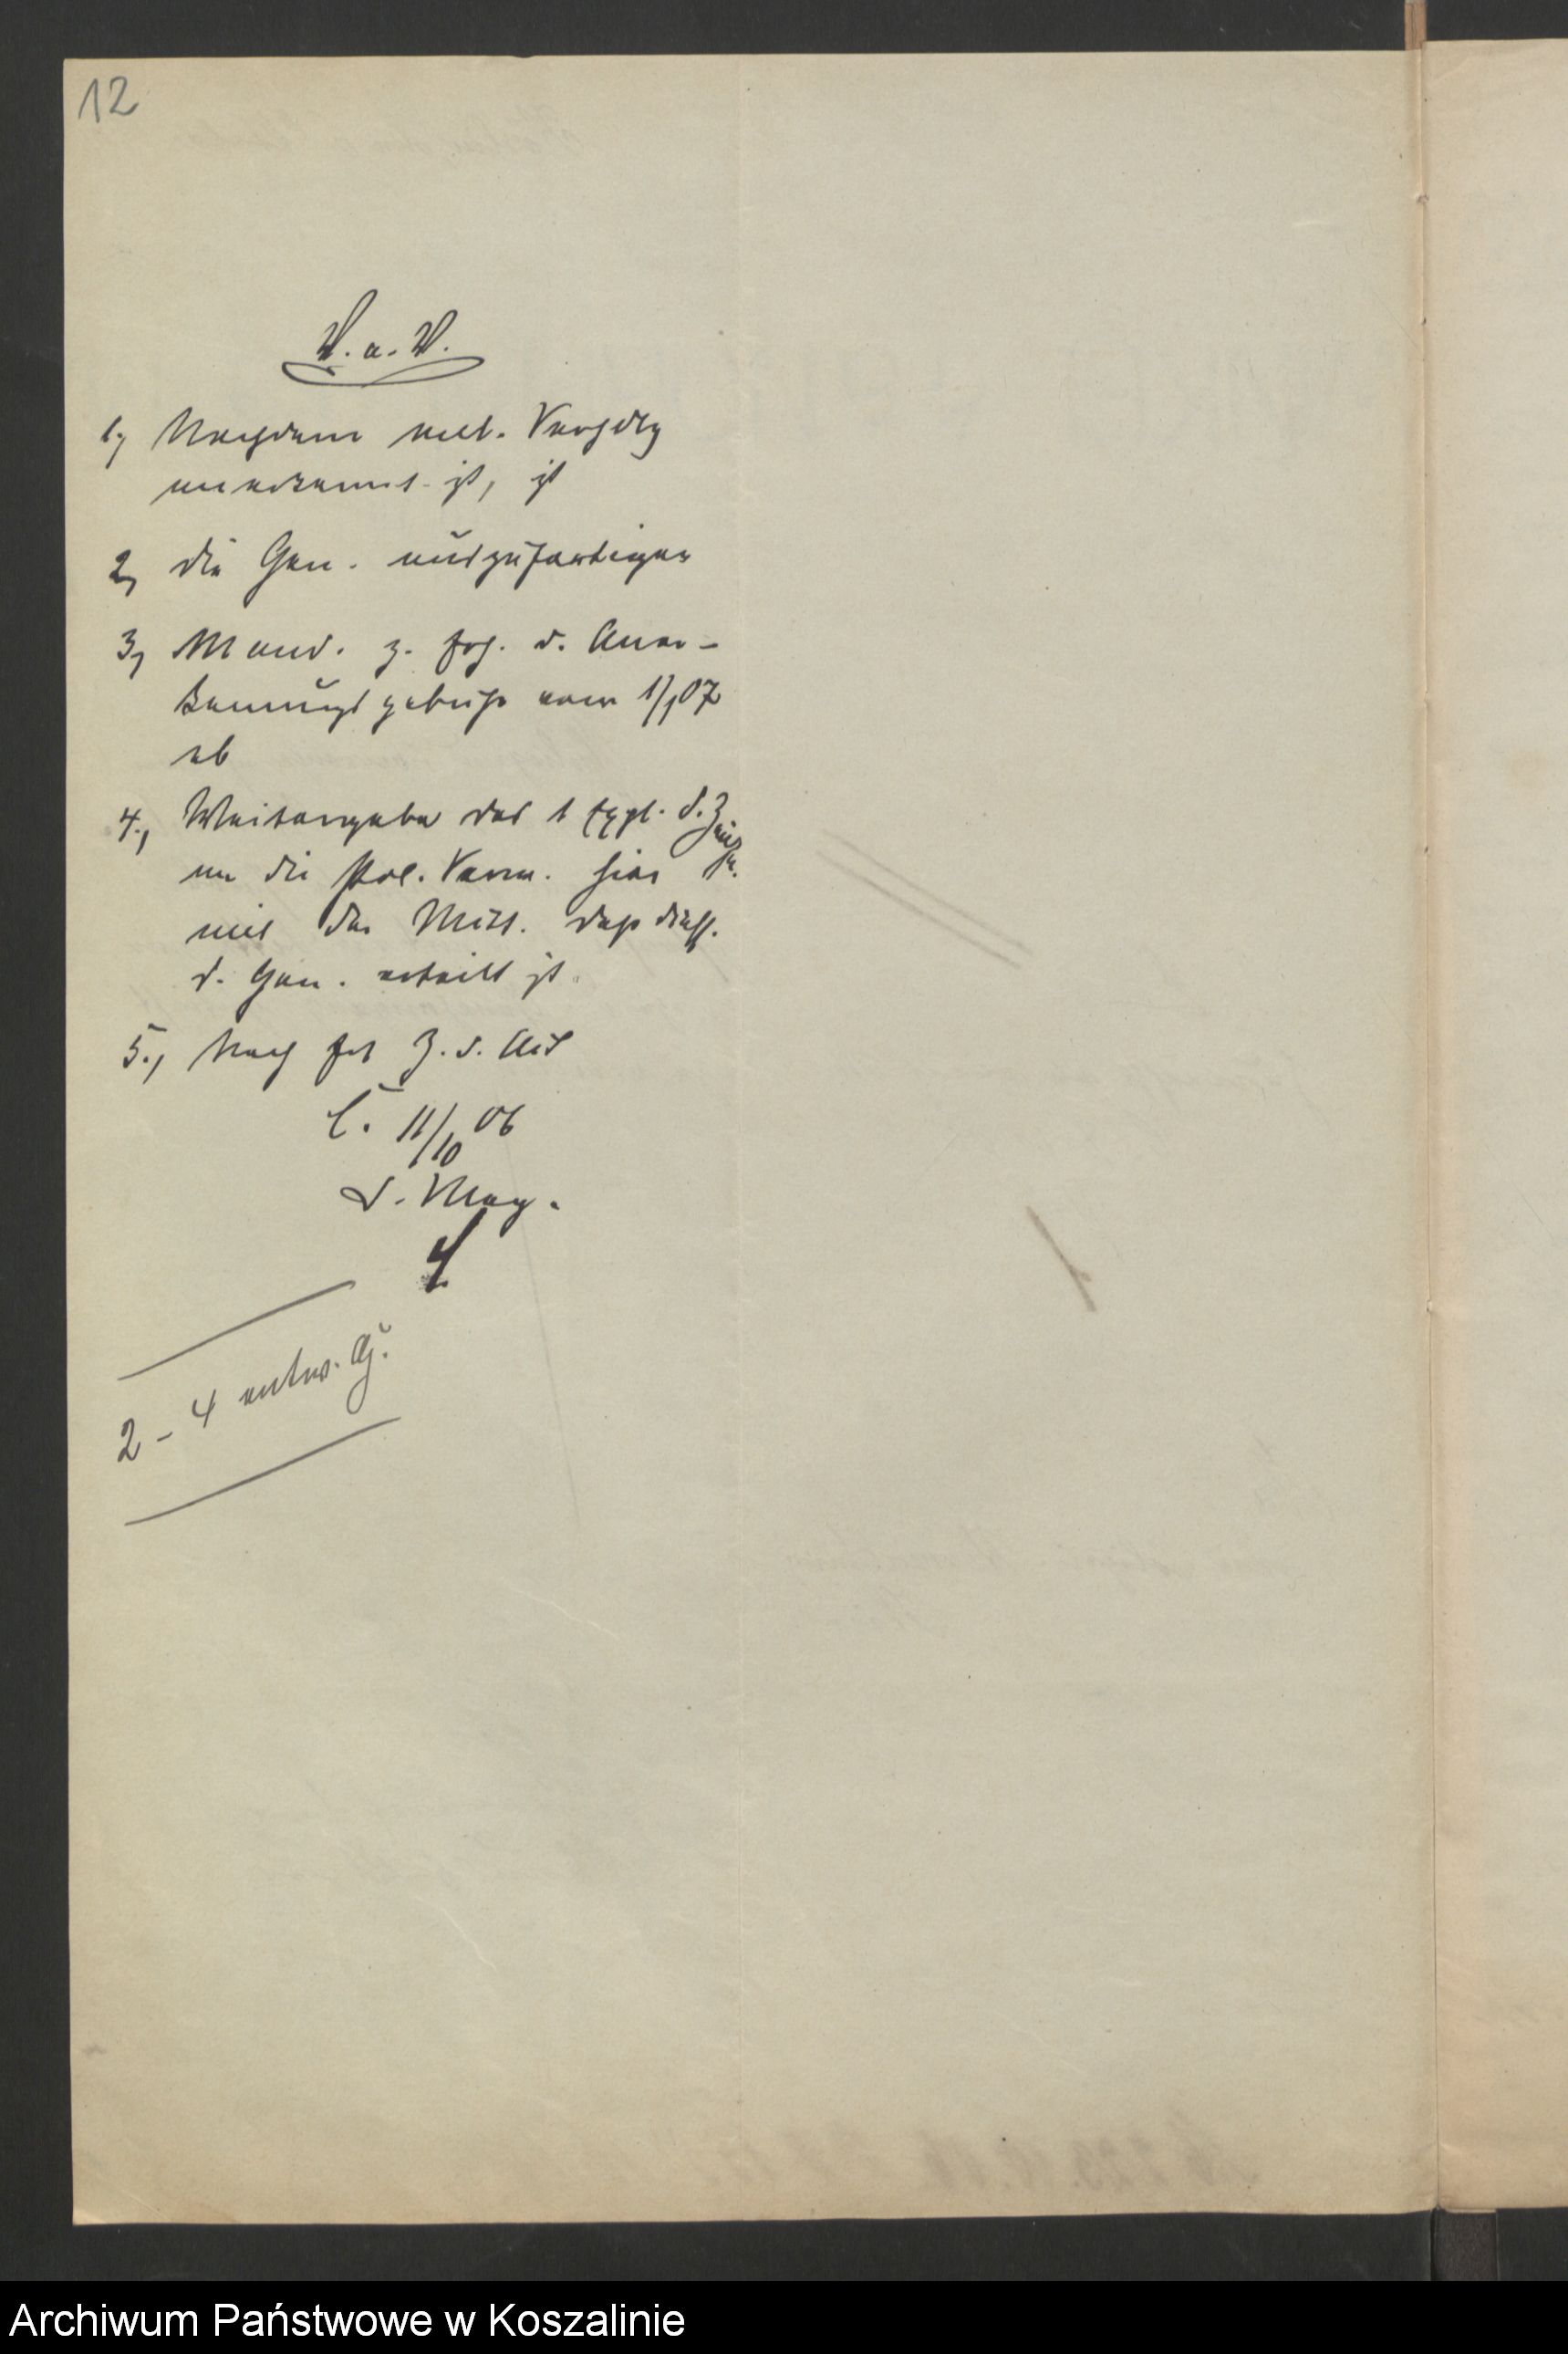 12
V. a. V.
1, Nachdem vul. Verhdlg
anerkannt ist, ist
2, die Gen. auszufertigen
3, Mand. z. Erh. d. Aner-
kennungsgebühr vom 1/1 07
ab
4., Weitergabe des 1 Expl. d. Zeich.
an die Pol. Verw. hier
mit der Mitt. daß dies.
d. Gen. erteilt ist.
5., Nach Erl Z. d. Akt
C. 11/10 06
D. Mag.
2 - 4 entw.
Archiwum Państwowe w Koszalinie